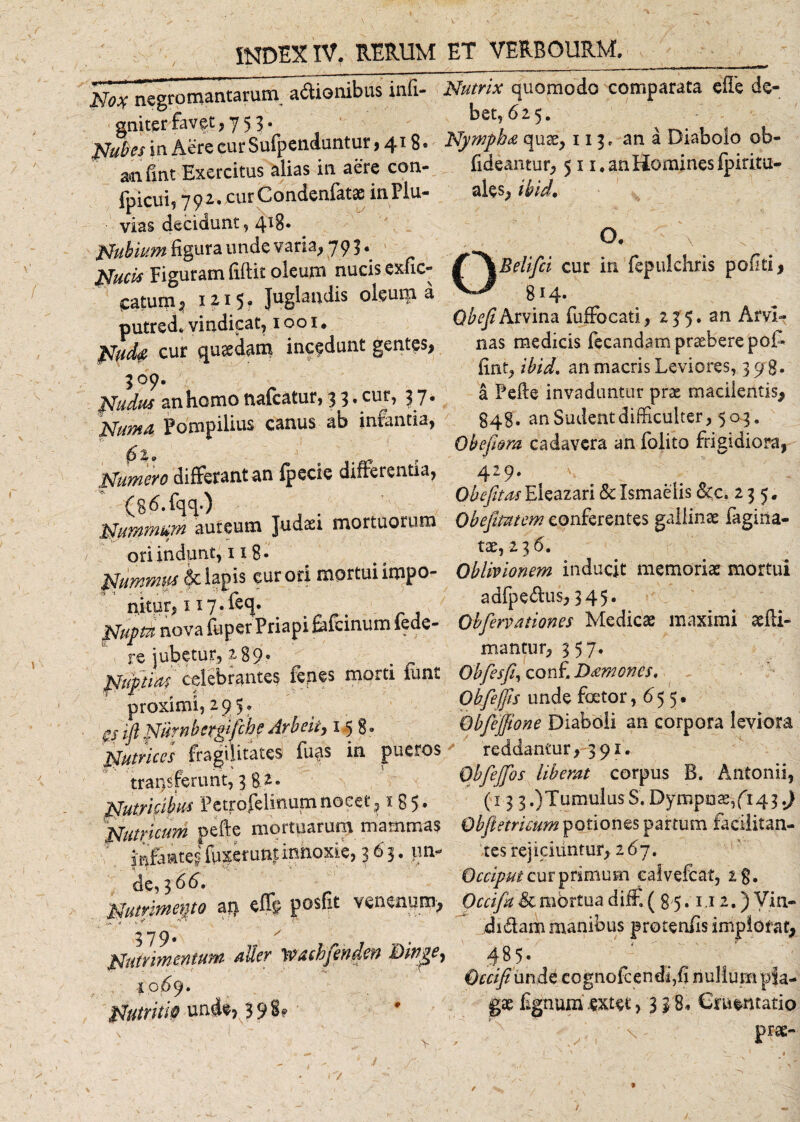 INDEX IV. RERUM ET VERBOURM.
Nox negromantarum actionibus insi-
gniter favet, 753.
Nubes in Aëre cur Suspenduntur, 418.
an sint Exercitus alias in aëre con-
spicui, 792. cur Condensatæ in Plu-
vias decidunt, 418.
Nubium figura unde varia, 793.
Nucis Figuram sistit oleum nucis exsic-
catum, 1215. Juglandis oleum à
putred. vindicat, 1001.
Nudæ cur quædam incedunt gentes,
309.
Nudus an homo nascatur, 33. cur, 37.
Numa Pompilius canus ab infantia,
62.
Numero differant an specie differentia,
(86.sqq.)
Nummum aureum Judæi mortuorum
ori indunt, 118.
Nummus & lapis cur ori mortui impo-
nitur, 117. seq.
Nupta nova super Priapi fascinum sede-
re jubetur, 289.
Nuptias celebrantes senes morti sunt
proximi, 295.
es ist Nürnbergische Arbeit, 158.
Nutrices fragilitates suas in pueros
transferunt, 382.
Nutricibus Petroselinum nocet, 185.
Nutricum peste mortuarum mammas
infantes suxerunt innoxie, 363. un-
de, 366.
Nutrimento an esse possit venenum,
379.
Nutrimentum aller Wachsenden Dinge,
1069.
Nutritio unde, 398.
Nutrix quomodo comparata esse de-
bet, 625.
Nymphæ quæ, 113. an à Diabolo ob-
sideantur, 511. an Homines spiritu-
ales, ibid.
O.
OBelisci cur in sepulchris positi,
814.
Obesi Arvina suffocati, 235. an Arvi-
nas medicis secandam præbere pos-
sint, ibid. an macris Leviores, 398.
à Peste invaduntur præ macilentis,
848. an Sudent difficulter, 503.
Obesiora cadavera an solito frigidiora,
429.
Obesitas Eleazari & Ismaëlis &c. 235.
Obesitatem conferentes gallinæ sagina-
tæ, 236.
Oblivionem inducit memoriæ mortui
adspectus, 345.
Observationes Medicæ maximi æsti-
mantur, 357.
Obsessi, conf. Dæmones.
Obsessis unde fœtor, 655.
Obsessione Diaboli an corpora leviora
reddantur, 391.
Obsessos liberat corpus B. Antonii,
(133.) Tumulus S. Dympnæ, (143.)
Obstetricum potiones partum facilitan-
tes rejiciuntur, 267.
Occiput cur primum calvescat, 28.
Occisa & mortua diff. (85. 112.) Vin-
dictam manibus protensis implorat,
485.
Occisi unde cognoscendi, si nullum pla-
gæ signum extet, 338. Cruentatio
præ-